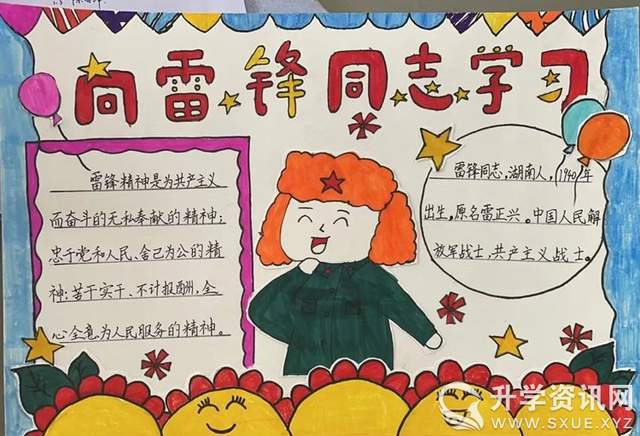 向雷锋同志学习
雷锋精神是为共产主义
而奋斗的无私奉献的精神;
忠于党和人民、舍己为公的精
神;苦干实干、不计报酬,全
心全意为人民服务的精神。
雷锋同志,湖南人,1940年
出生,原名雷正兴。中国人民解
放军战士,共产主义战士。
升学资讯网
WWW.SXUE.XYZ